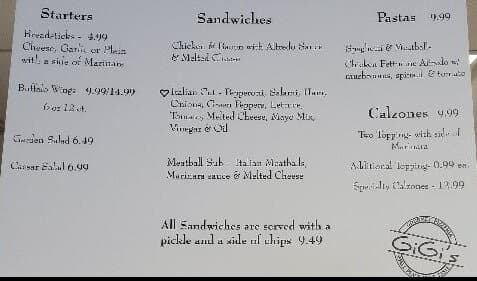 Starters
Breadsticks - 4.99
Cheese, Garlic or Plain
with a side of Marinara
Buffalo Wings 9.99/14.99
6 or 12 ct.
Garden Salad 6.49
Caesar Salad 6.99
Sandwiches
Chicken & Bacon with Alfredo Sauce
& Melted Cheese
Italian Cut - Pepperoni, Salami, Ham,
Onions, Green Peppers, Lettuce,
Tomato, Melted Cheese, Mayo Mix,
Vinegar & Oil
Meatball Sub - Italian Meatballs,
Marinara sauce & Melted Cheese
All Sandwiches are served with a
pickle and a side of chips 9.49
Pastas 9.99
Spaghetti & Meatball-
Chicken Fettuccine Alfredo w/
mushrooms, & tomato
Calzones 9.99
Two Topping- with side of
Marinara
Additional Topping- 0.99 ea.
Specialty Calzones - 13.99
GiGi's